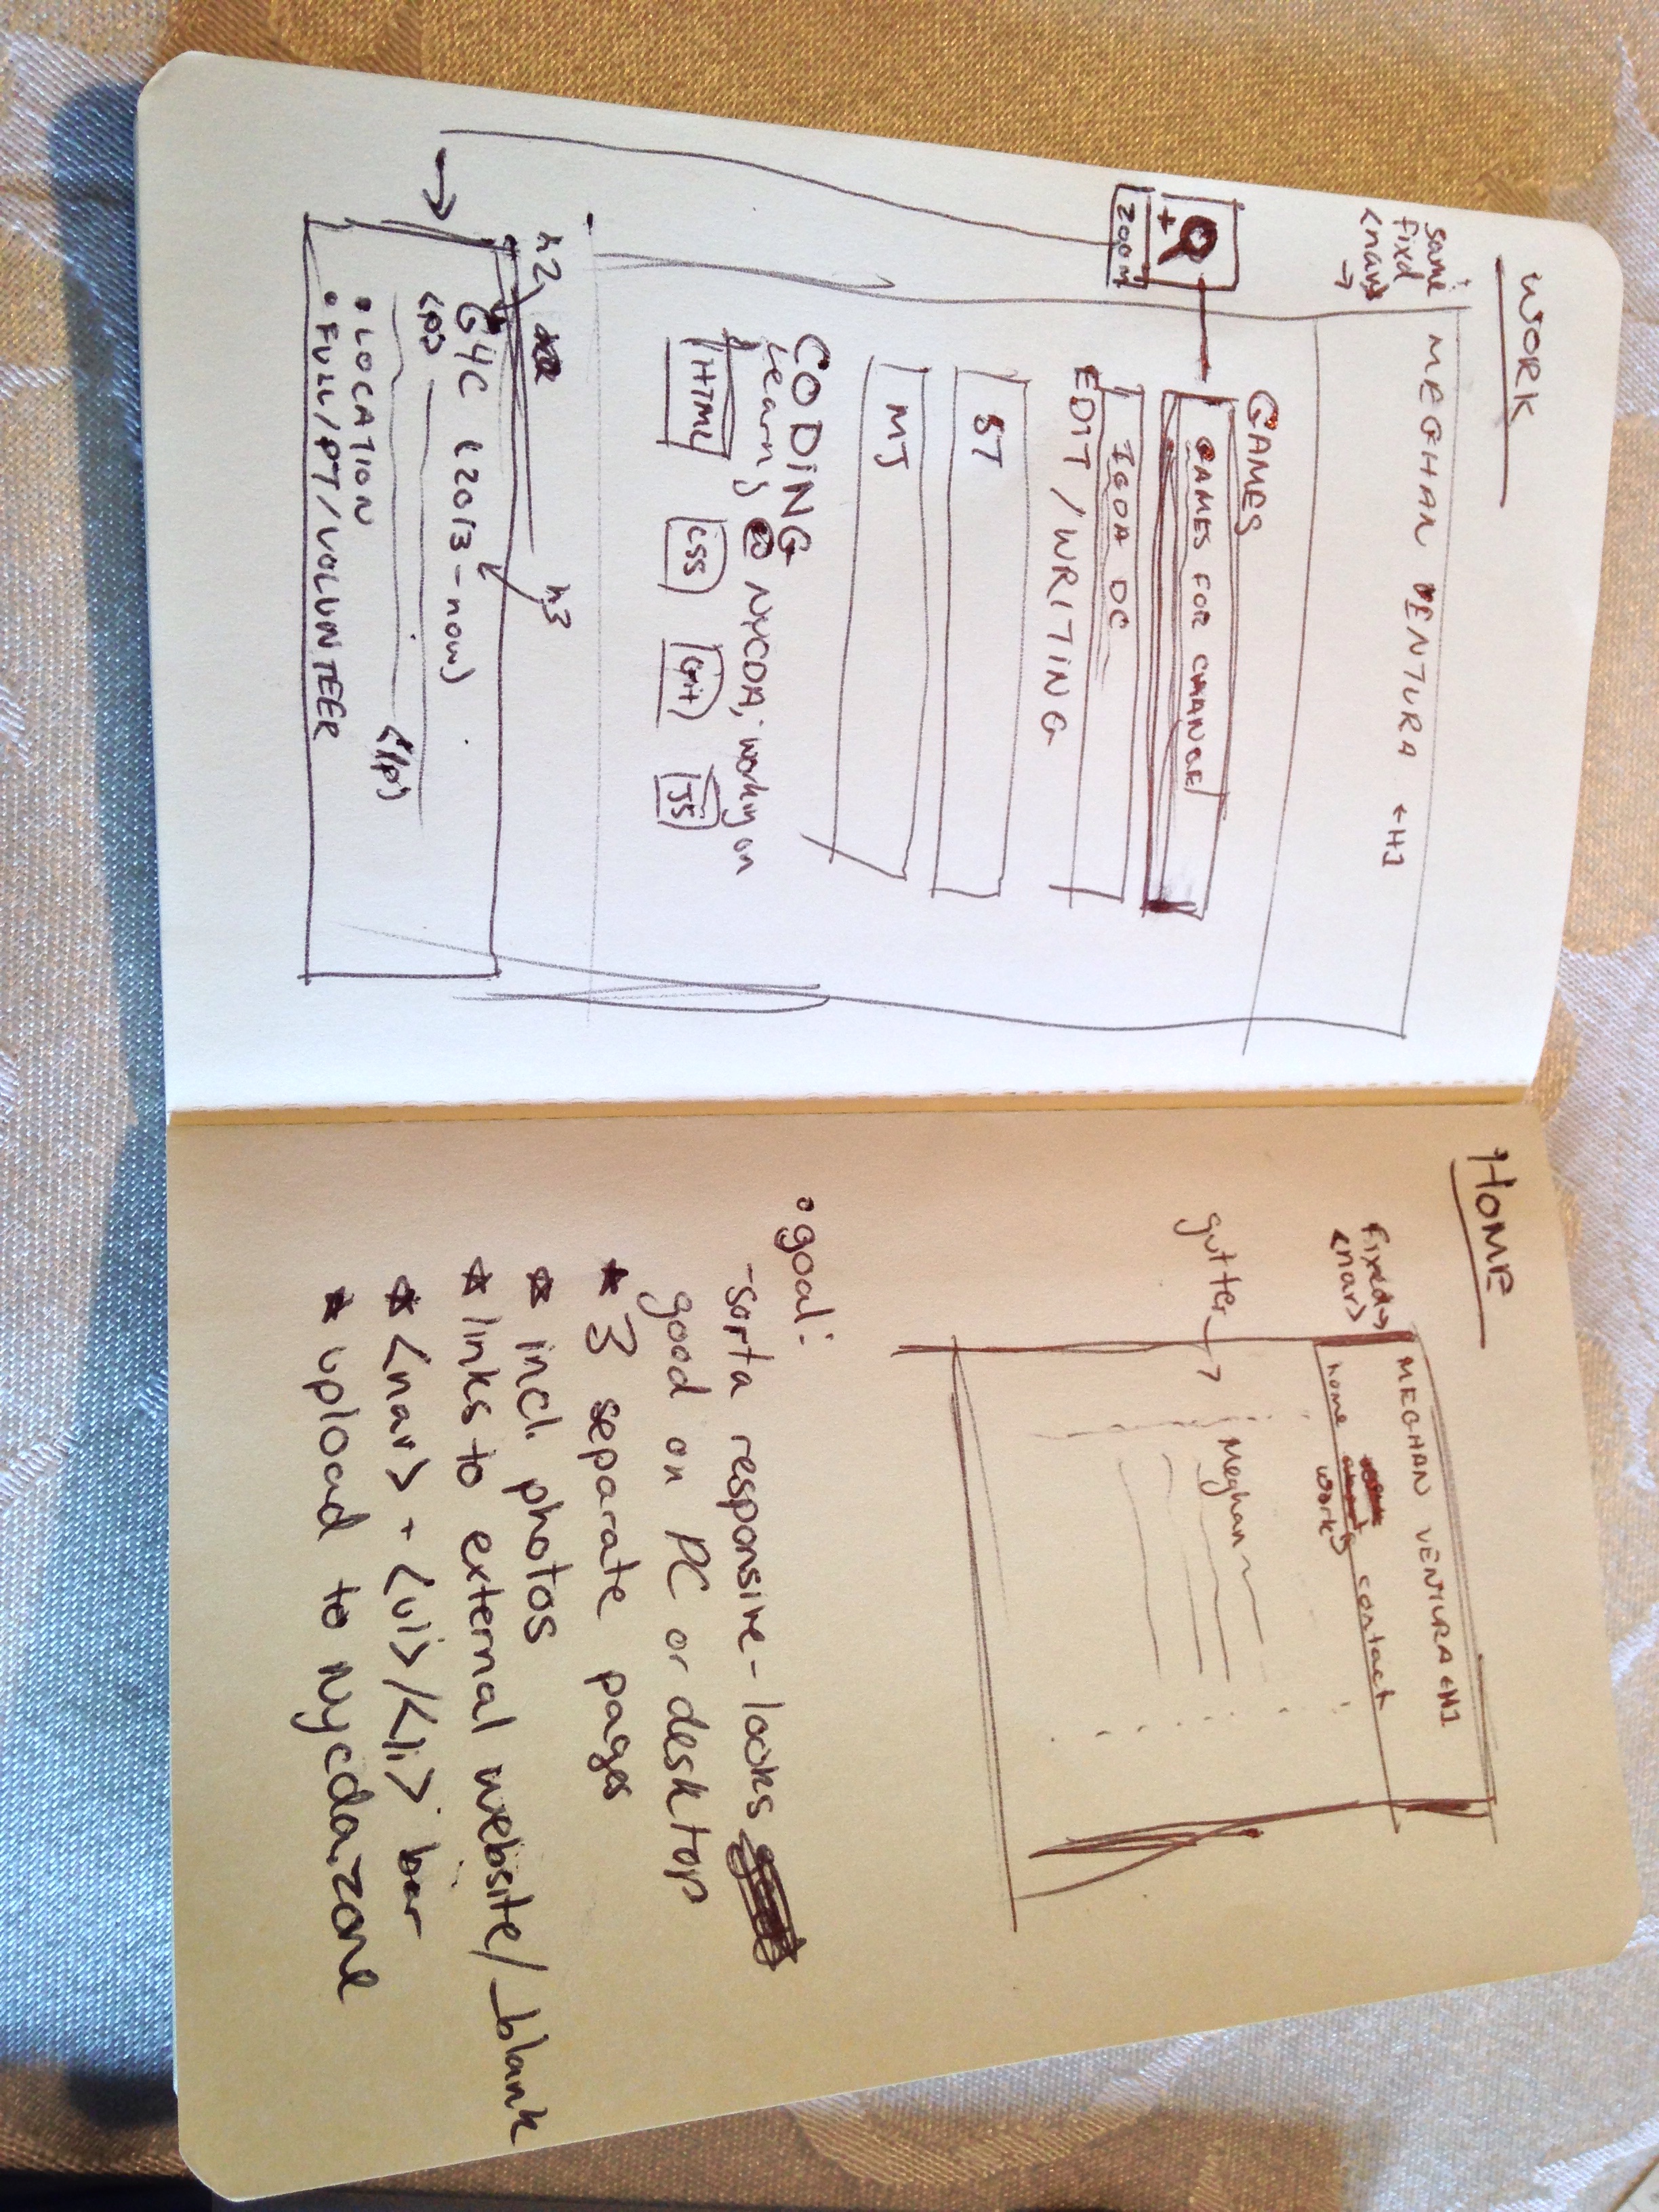 WORK
same
fixd
<nav>
MEGHAN VENTURA ← H1
GAMES
GAMES FOR CHANGE
IGDA DC
ZOOM
EDIT/WRITING
ST
MJ
CODING
Learn'g @ NYCDA; working on
HTML
CSS
Git
JS
h2
h3
G4C (2013-now)
<p>
</p>
• LOCATION
• FULL/PT/VOLUNTEER
HOME
fixed
<nav>
MEGHAN VENTURA ← H1
home
work
contact
gutter
Meghan
• goal:
- sorta responsive - looks
good on PC or desktop
★ 3 separate pages
★ incl. photos
★ links to external website/_blank
★ <nav> + <ul>/<li> bar
★ upload to nycda.zone